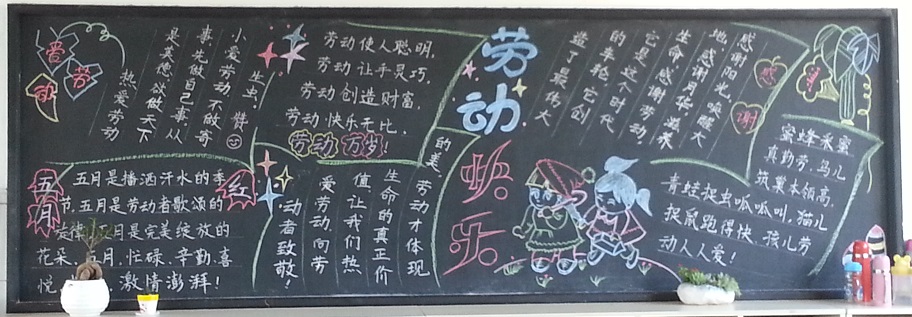 劳
动
热爱劳动
是美德,欲做天下
事先做自己事,从
小爱劳动,不做寄
生虫,赞
劳动使人聪明,
劳动让手灵巧,
劳动创造财富,
劳动快乐无比!
劳动万岁!
五月
红
五月是播洒汗水的季
节,五月是劳动者歌颂的
律,五月是完美绽放的
花朵,五月,忙碌、辛勤、喜
悦、激情澎湃!
劳动
快乐
感谢
感谢阳光,唤醒大
地,感谢月华,滋养
生命,感谢劳动,
它是这个时代
的车轮,它创
造了最伟大
的美,劳动才体现
生命的真正价
值,让我们热
爱劳动,向劳
动者致敬!
蜜蜂采蜜
真勤劳,鸟儿
筑巢本领高,
青蛙捉虫呱呱叫,猫儿
捉鼠跑得快,孩儿劳
动人人爱!